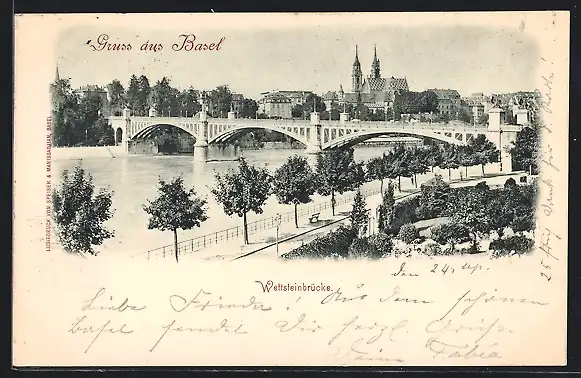 Gruss aus Basel
LICHTDRUCK VON SPEISER & MANISSADJIAN, BASEL
Wettsteinbrücke.
den 24.
Liebe Frieda! Aus dem schönen
Basel sendet Dir herzl. Grüsse
Deine Fabia